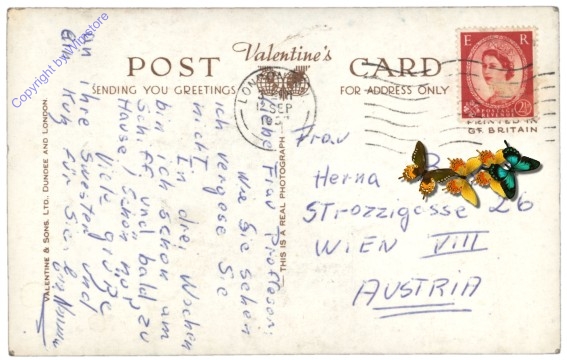 Copyright by Winstore
Valentine's
POST CARD
SENDING YOU GREETINGS
FOR ADDRESS ONLY
E R
POSTAGE REVENUE
2½
LONDON
12 SEP
PRINTED IN
GT. BRITAIN
VALENTINE & SONS. LTD. DUNDEE AND LONDON.
THIS IS A REAL PHOTOGRAPH
Frau
Herna
Strozzigasse 26
WIEN VIII
AUSTRIA
Frau
Wie Sie sehen
ich vergesse Sie
nicht.
In drei Wochen
bin ich schon am
Schiff und bald zu
Hause! Schön
Viele Grüße
an Ihre Swester und
ein Kuß für Sie